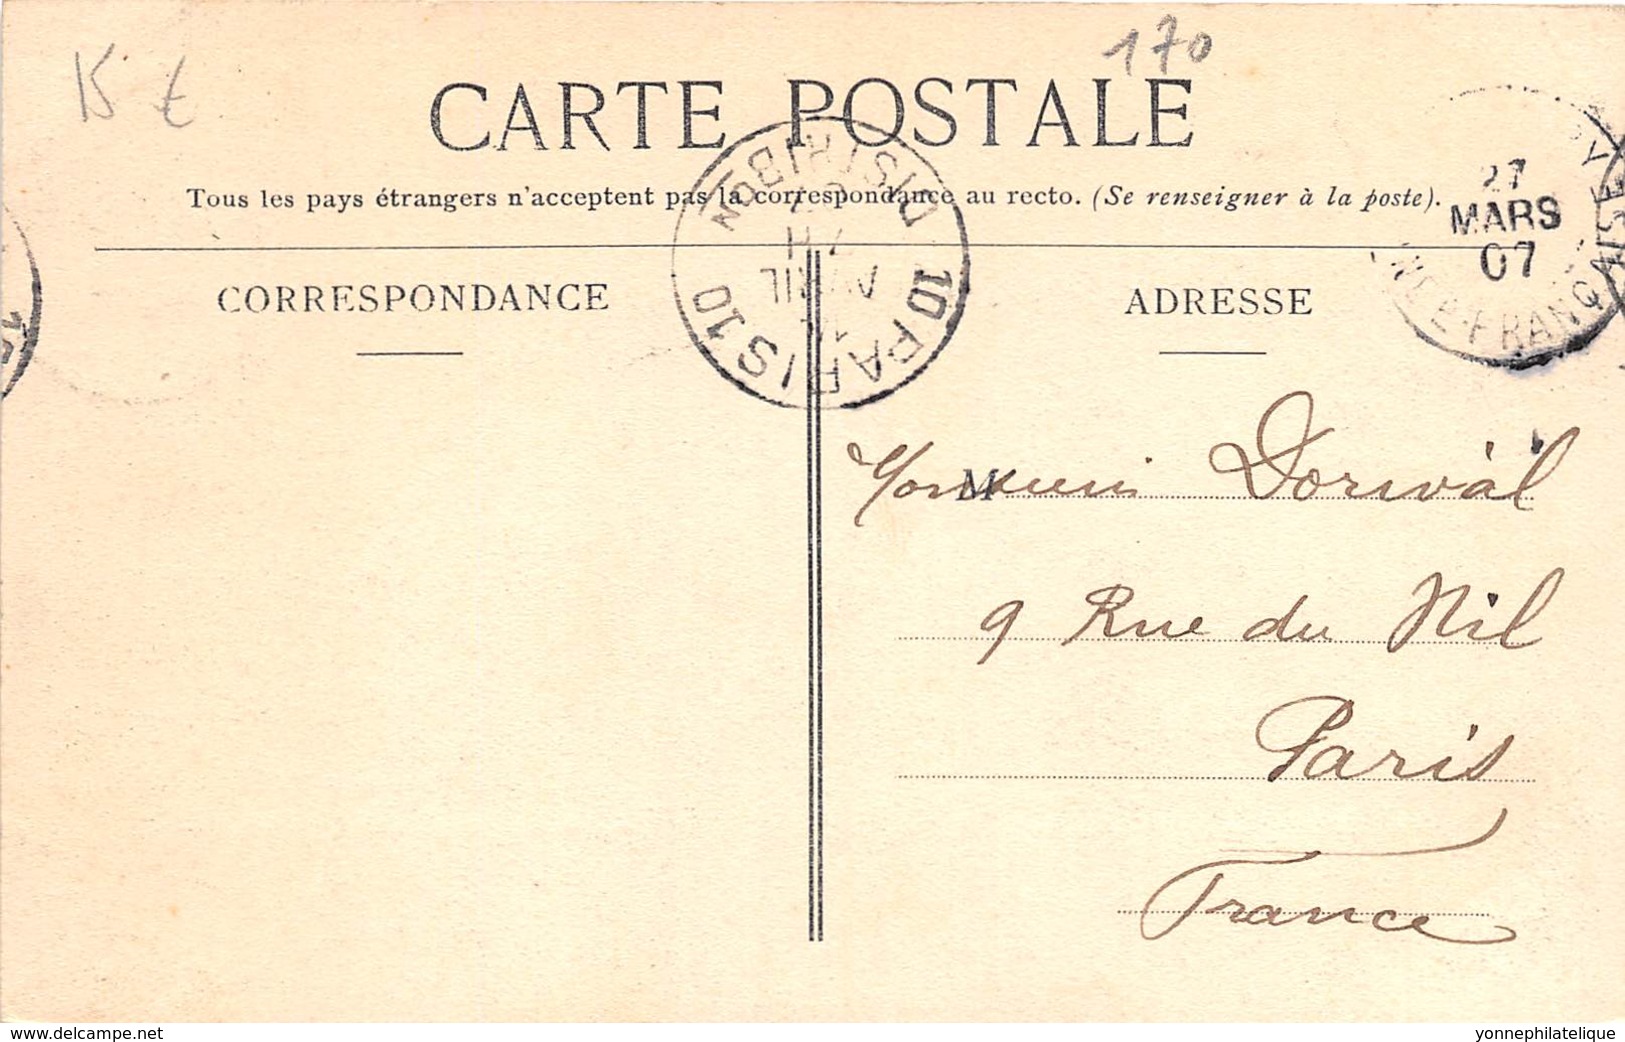 15 €
170
CARTE POSTALE
Tous les pays étrangers n'acceptent pas la correspondance au recto. (Se renseigner à la poste).
CORRESPONDANCE
ADRESSE
PARIS 10 DISTRIBON 10
AVRIL
27
MARS
07
Monsieur Dorwal
M
9 Rue du Nil
Paris
France
www.delcampe.net
yonnephilatelique